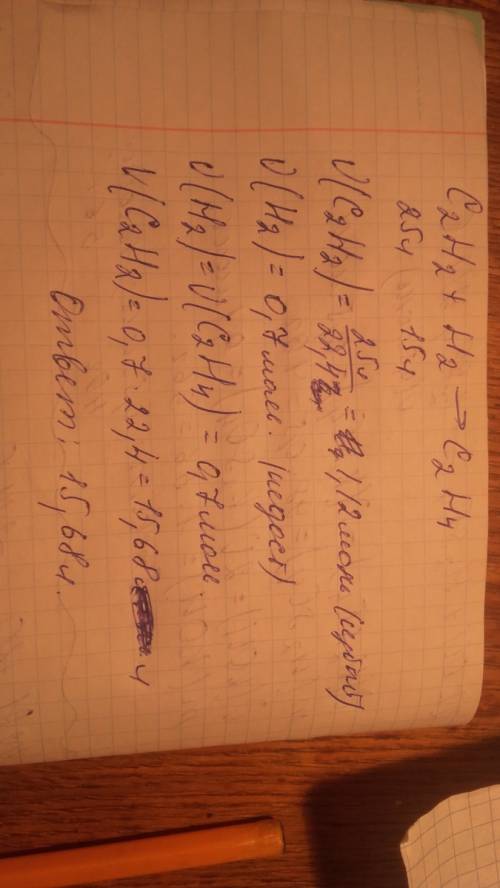 C₂H₂ + H₂ → C₂H₄
25л 15л
ν(C₂H₂) = 25л/22,4 = 1,12 моль (избыт)
ν(H₂) = 0,7 моль. (недост)
ν(H₂) = ν(C₂H₄) = 0,7 моль.
V(C₂H₂) = 0,7 · 22,4 = 15,68 л
Ответ: 15,68 л.